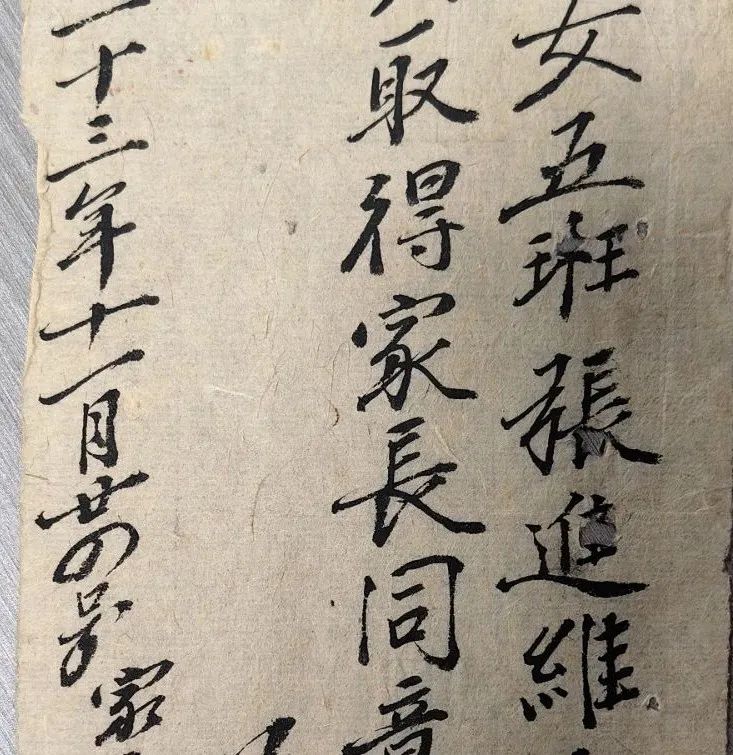 女五班張進維
取得家長同意
二十三年十一月廿四号 家